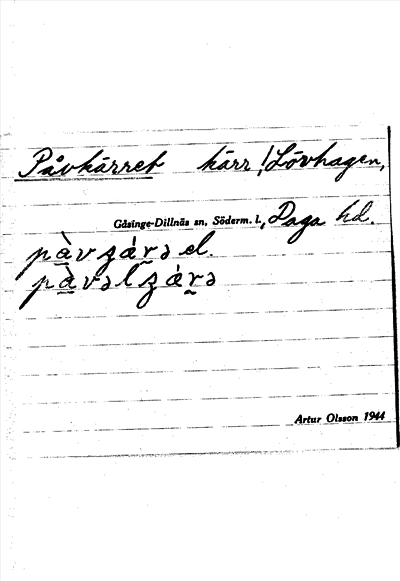 Påvkärret kärr, Lövhagen,
Gåsinge-Dillnäs sn, Söderm. l., Daga hd.
el.
Artur Olsson 1944